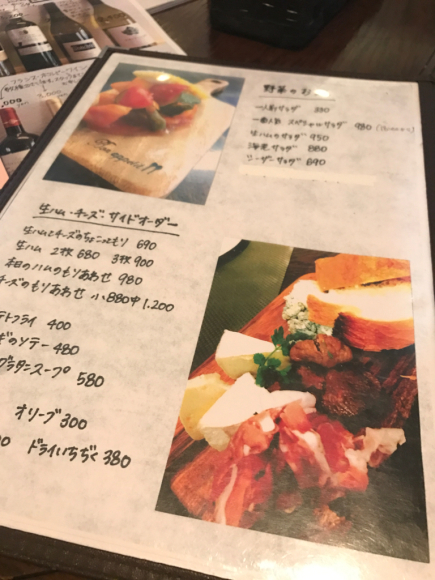 フランス
野菜の
サラダ 380
一番人気 スペシャルサラダ 980
生ハムのサラダ 950
海老サラダ 880
シーザーサラダ 690
生ハム・チーズ・サイドオーダー
生ハムとチーズのちょこっともり 690
生ハム 2枚 680 3枚 900
本日のハムのもりあわせ 980
チーズのもりあわせ 小 880 中 1,200
テトフライ 400
ギのソテー 480
グラタンスープ 580
オリーブ 300
ドライいちぢく 380